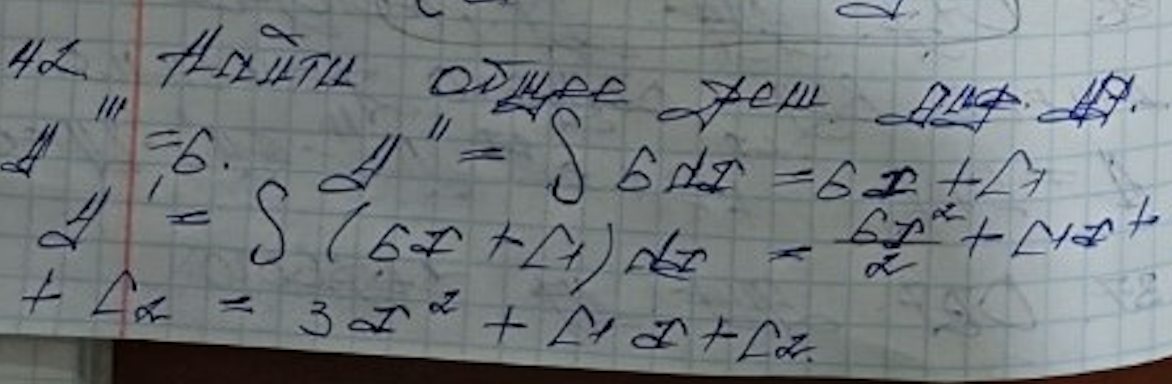 42. Найти общее реш. диф. ур.
y''' = 6. y'' = ∫ 6 dx = 6x + C1
y' = ∫ (6x + C1) dx = 6x²/2 + C1x +
+ C2 = 3x² + C1x + C2.